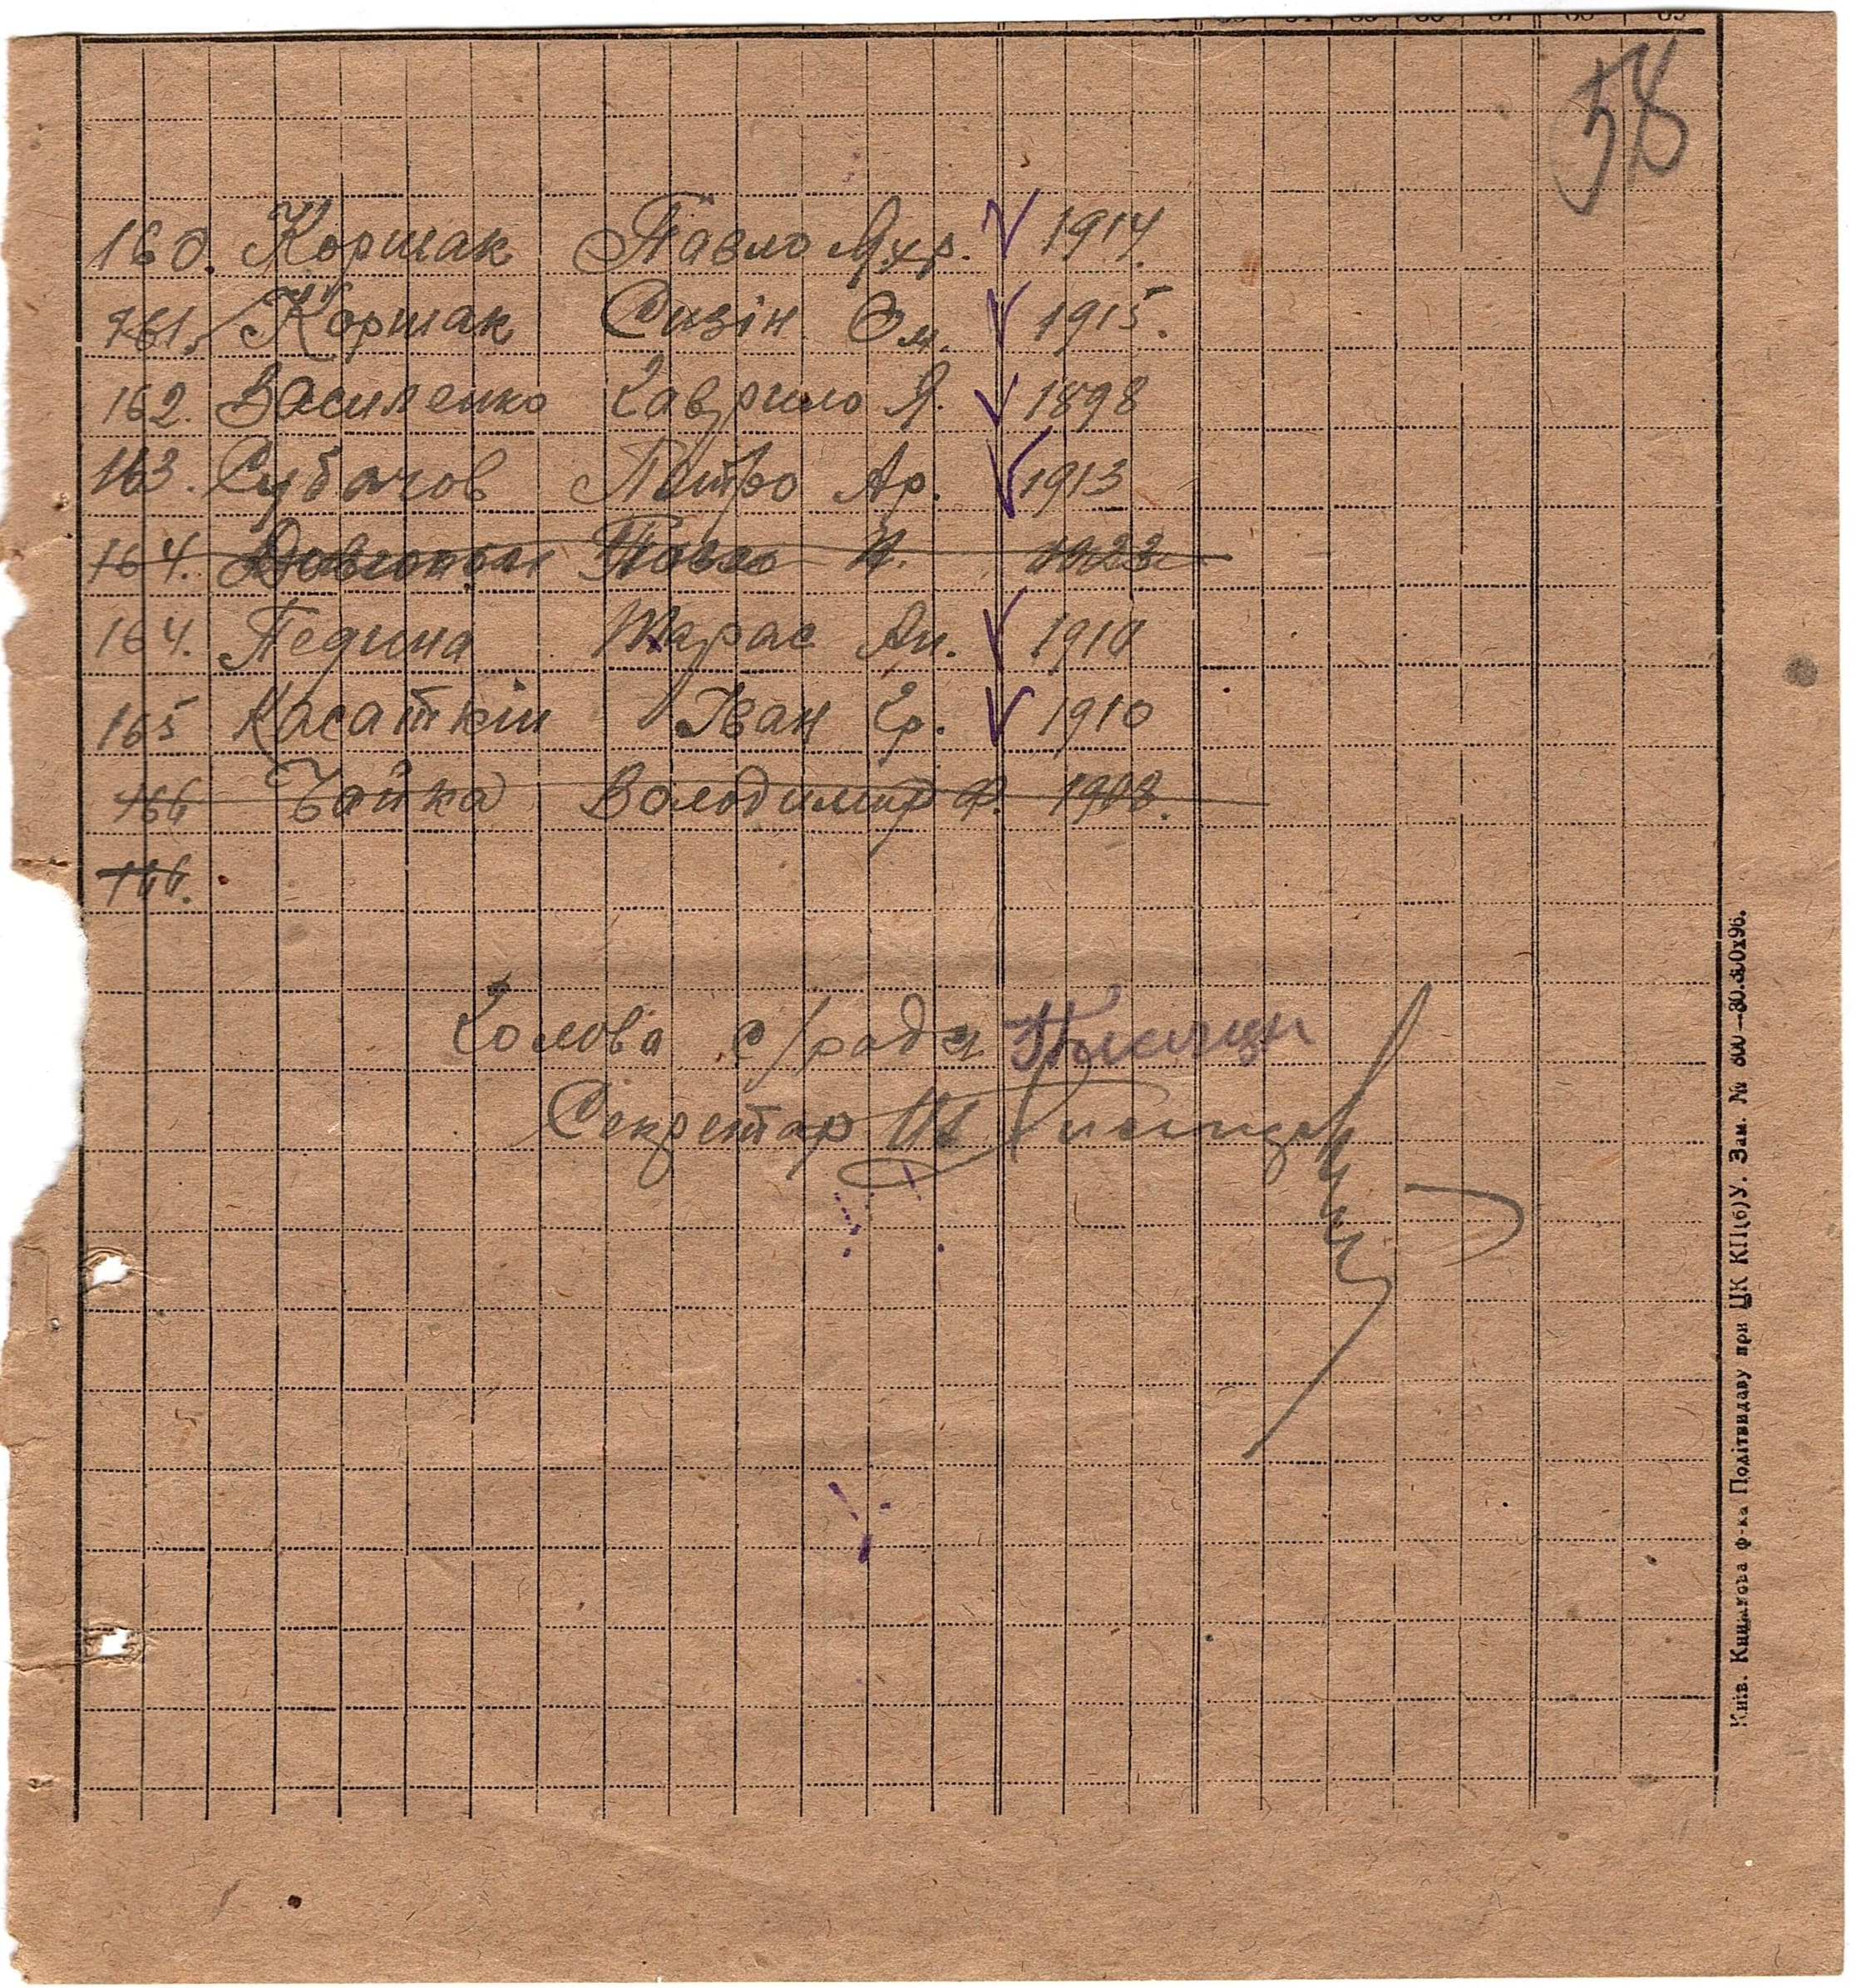 58
160. Коршак Павло Яхр. V 1914.
161. Коршак Сизін Ом. V 1915.
162. Василенко Гаврило Я. V 1898
163. Субачов Петро Ар. V 1913
164. Павло И. 1923
164. Педина Тарас Ан. V 1910
165 Касаткін Іван Гр. V 1910
166 Чайка Володимир Ф. 1908.
166.
Голова с/ради
Секретар
Київ. Книжкова ф-ка Політвидаву при ЦК КП(б)У. Зам. № 800—30.